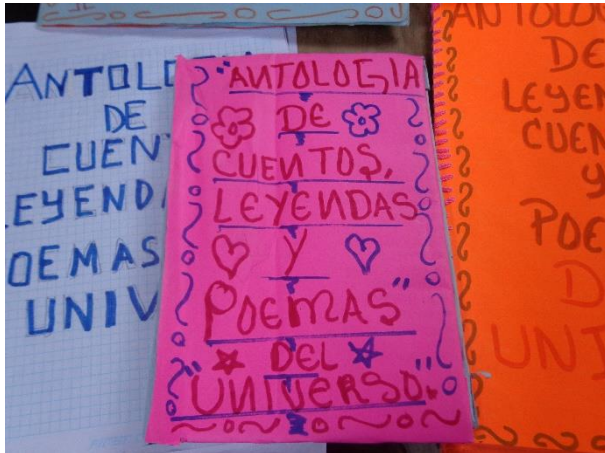 ANTOLO
DE
CUEN
LEYEND
OEMAS
UNIV
"ANTOLOGIA
DE
CUENTOS,
LEYENDAS
Y
POEMAS"
DEL
"UNIVERSO."
ANTOLOG
DE
LEYEN
CUEN
Y
POE
D
UNI